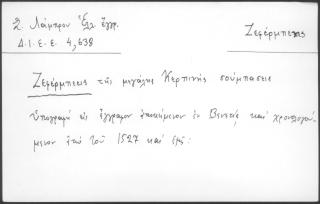 Σ. Λάμπρου Ἑξ. ἔγγρ.
Δ.Ι.Ε.Ε. 4, 638
Ζεφέρμπεης
Ζεφέρμπεης τῆς μεγάλης Κερπινῆς σούμπασις
ὑπογραφὴ εἰς ἔγγραφον ἀποκείμενον ἐν Βενετίᾳ καὶ χρονολογού-
μενον ἀπὸ τοῦ 1527 καὶ ἑξῆς: